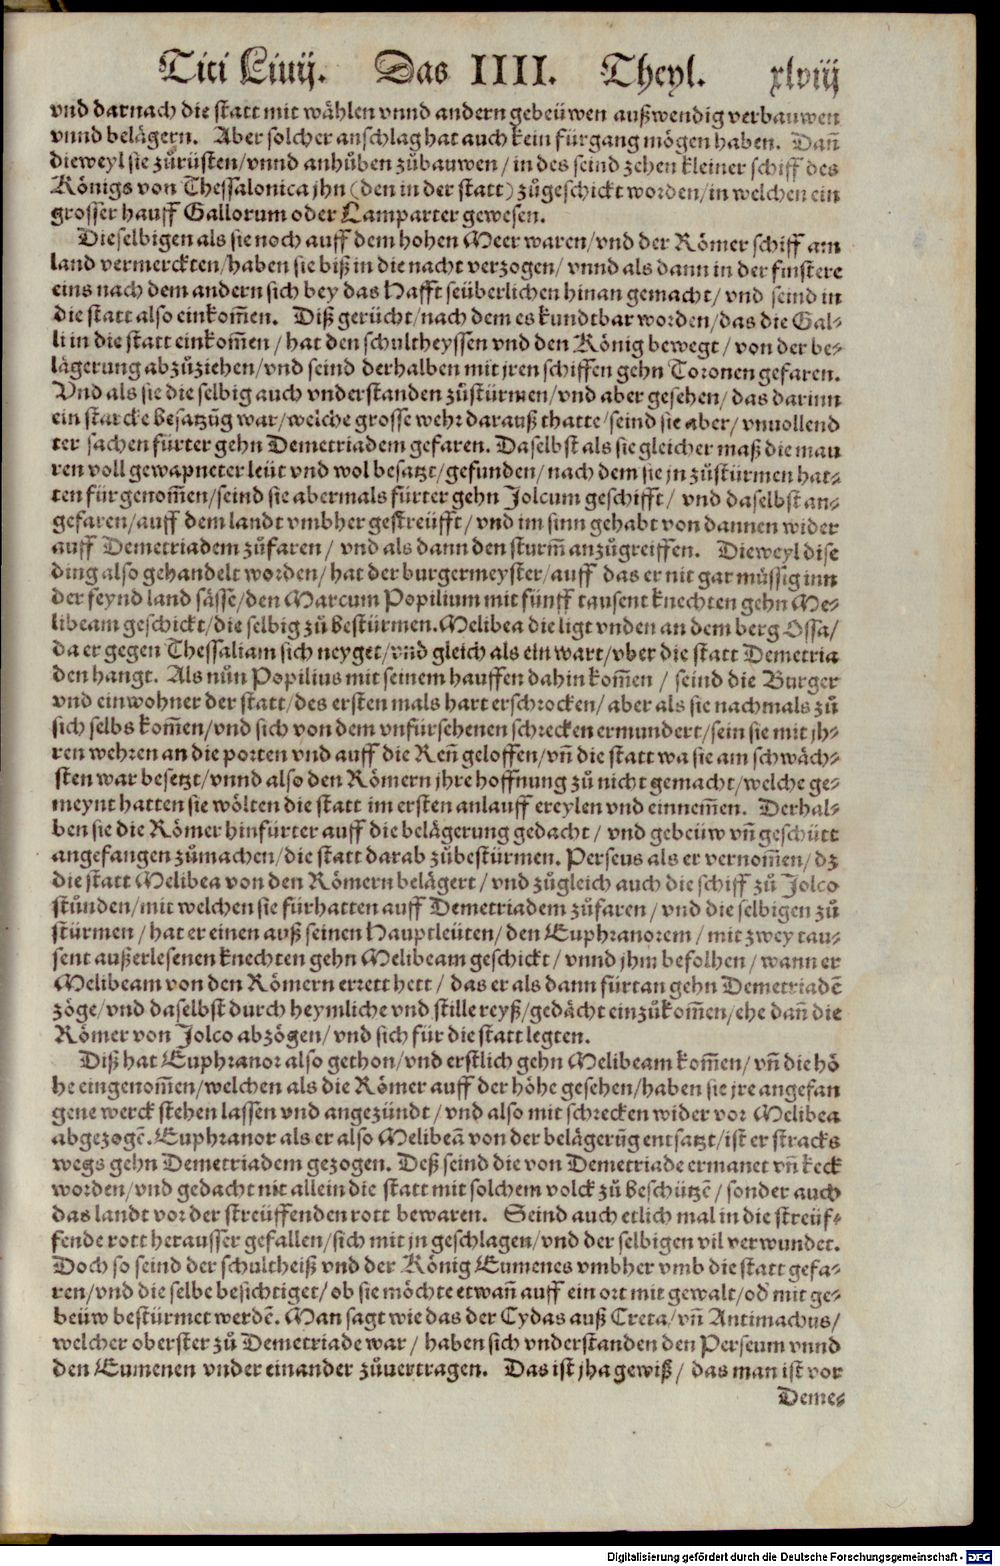 Titi Liuij. Das IIII. Theyl. xlviij
vnd darnach die statt mit wählen vnnd andern gebeüwen außwendig verbauwen
vnnd belägern. Aber solcher anschlag hat auch kein fürgang mögen haben. Dañ
dieweyl sie zůrüsten/vnnd anhůben zůbauwen/in des seind zehen kleiner schiff des
Königs von Thessalonica jhn (den in der statt) zůgeschickt worden/in welchen ein
grosser hauff Gallorum oder Lamparter gewesen.
Dieselbigen als sie noch auff dem hohen Meer waren/vnd der Römer schiff am
land vermerckten/haben sie biß in die nacht verzogen/ vnnd als dann in der finstere
eins nach dem andern sich bey das Hafft seüberlichen hinan gemacht/ vnd seind in
die statt also einkom̃en. Diß gerücht/nach dem es kundtbar worden/das die Gal⸗
li in die statt einkom̃en/ hat den schultheyssen vnd den König bewegt/ von der be⸗
lägerung abzůziehen/vnd seind derhalben mit jren schiffen gehn Toronen gefaren.
Vnd als sie die selbig auch vnderstanden zůstürmen/vnd aber gesehen/das darinn
ein starcke besatzũg war/welche grosse wehr darauß thatte/seind sie aber/vnuollend
ter sachen fürter gehn Demetriadem gefaren. Daselbst als sie gleicher maß die mau
ren voll gewapneter leüt vnd wol besatzt/gefunden/nach dem sie jn zůstürmen hat⸗
ten fürgenom̃en/seind sie abermals fürter gehn Jolcum geschifft/ vnd daselbst an⸗
gefaren/auff dem landt vmbher gestreüfft/vnd im sinn gehabt von dannen wider
auff Demetriadem zůfaren/ vnd als dann den sturm̃ anzůgreiffen. Dieweyl dise
ding also gehandelt worden/hat der burgermeyster/auff das er nit gar müssig inn
der feynd land sässe/den Marcum Popilium mit fünff tausent knechten gehn Me⸗
libeam geschickt/die selbig zů bestürmen. Melibea die ligt vnden an dem berg Ossa/
da er gegen Thessaliam sich neyget/vnd gleich als ein wart/vber die statt Demetria
den hangt. Als nůn Popilius mit seinem hauffen dahin kom̃en/ seind die Burger
vnd einwohner der statt/des ersten mals hart erschrocken/aber als sie nachmals zů
sich selbs kom̃en/vnd sich von dem vnfürsehenen schrecken ermundert/sein sie mit jh⸗
ren wehren an die porten vnd auff die Reñ geloffen/vñ die statt wa sie am schwäch⸗
sten war besetzt/vnnd also den Römern jhre hoffnung zů nicht gemacht/welche ge⸗
meynt hatten sie wölten die statt im ersten anlauff ereylen vnd einnem̃en. Derhal⸗
ben sie die Römer hinfürter auff die belägerung gedacht/ vnd gebeüw vñ geschütt
angefangen zůmachen/die statt darab zůbestürmen. Perseus als er vernom̃en/dz
die statt Melibea von den Römern belägert/vnd zůgleich auch die schiff zů Jolco
stůnden/mit welchen sie fürhatten auff Demetriadem zůfaren/vnd die selbigen zů
stürmen/hat er einen auß seinen Hauptleüten/den Euphranorem/mit zwey tau⸗
sent außerlesenen knechten gehn Melibeam geschickt/ vnnd jhm befolhen/wann er
Melibeam von den Römern errett hett/ das er als dann fürtan gehn Demetriadẽ
zöge/vnd daselbst durch heymliche vnd stille reyß/gedächt einzůkom̃en/ehe dañ die
Römer von Jolco abzögen/vnd sich für die statt legten.
Diß hat Euphranor also gethon/vnd erstlich gehn Melibeam kom̃en/vñ die hö
he eingenom̃en/welchen als die Römer auff der höhe gesehen/haben sie jre angefan
gene werck stehen lassen vnd angezündt/vnd also mit schrecken wider vor Melibea
abgezogẽ. Euphranor als er also Melibeã von der belägerũg entsatzt/ist er stracks
wegs gehn Demetriadem gezogen. Deß seind die von Demetriade ermanet vñ keck
worden/vnd gedacht nit allein die statt mit solchem volck zů beschützẽ/sonder auch
das landt vor der streüffenden rott bewaren. Seind auch etlich mal in die streüf⸗
fende rott herausser gefallen/sich mit jn geschlagen/vnd der selbigen vil verwundet.
Doch so seind der schultheiß vnd der König Eumenes vmbher vmb die statt gefa⸗
ren/vnd die selbe besichtiget/ob sie möchte etwañ auff ein ort mit gewalt/od̕ mit ge⸗
beüw bestürmet werdẽ. Man sagt wie das der Cydas auß Creta/vñ Antimachus/
welcher oberster zů Demetriade war/ haben sich vnderstanden den Perseum vnnd
den Eumenen vnder einander zůuertragen. Das ist jha gewiß/ das man ist vor
Deme⸗
Digitalisierung gefördert durch die Deutsche Forschungsgemeinschaft - DFG